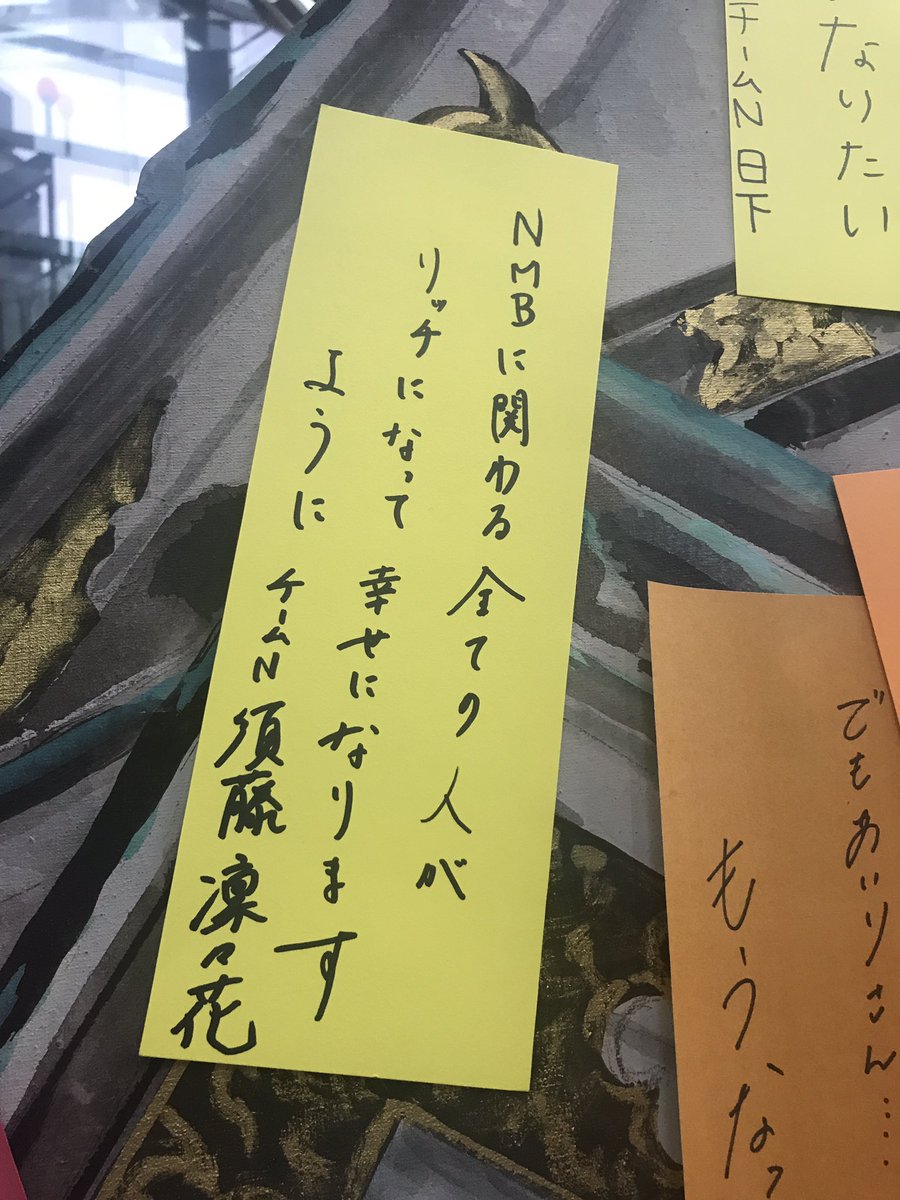 NMBに関わる全ての人が
リッチになって幸せになります
ように
チームN 須藤凜々花
なりたい
チームN 日下
でもありりさん……
もう、なっ